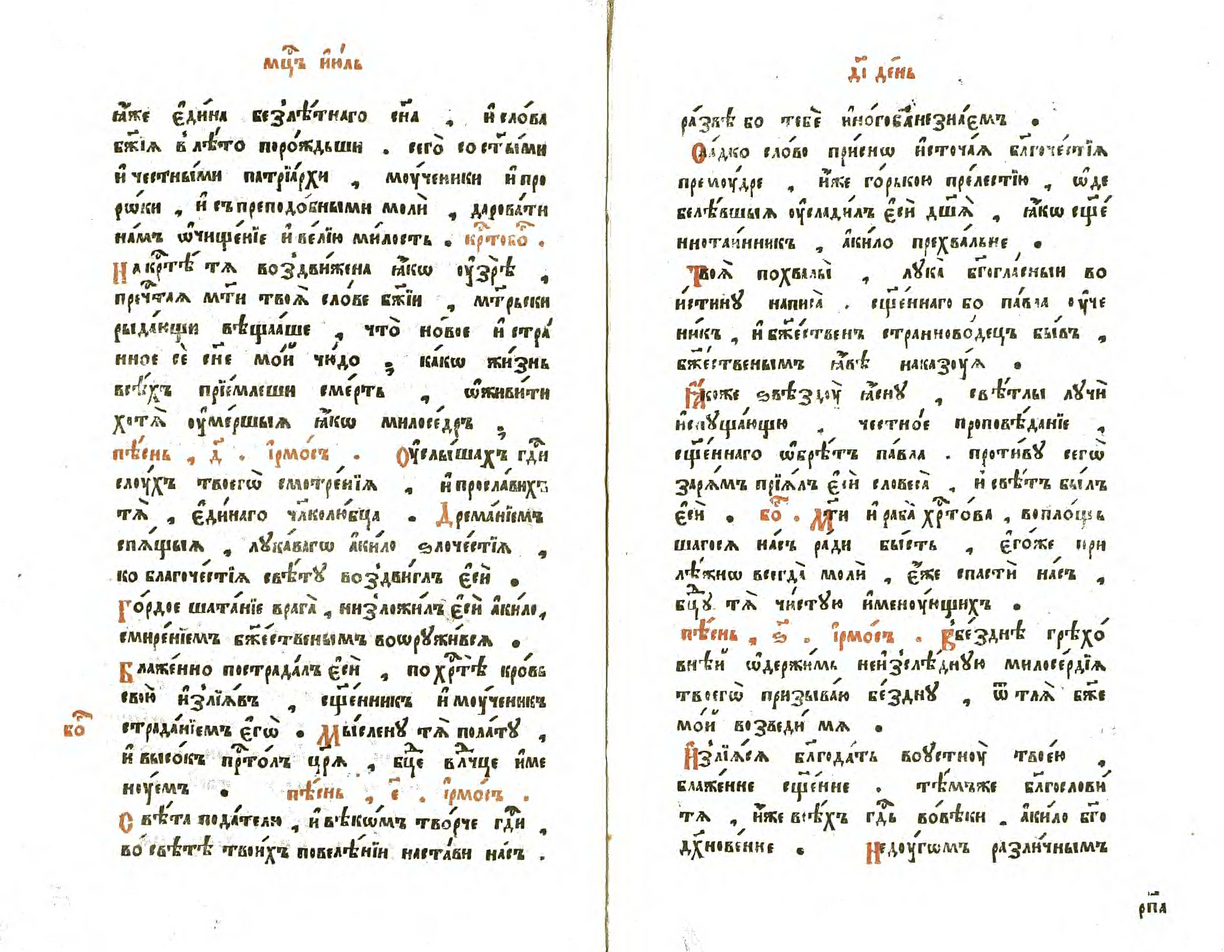 мцⷭ҇ъ і҆ю́ль
ꙗ҆́же є҆ди́на безлѣ́тнаго сн҃а , и҆ сло́ва
бж҃їѧ в лѣ́то поро́ждьши . сего̀ со ст҃ы́ми
и҆ че́стны́ми патрїа́рхи , моу́ченики и҆ про
рѡ́ки , и҆ съ преподо́бными молѝ , дарова́ти
на́мъ ѡ҆чище́нїе и҆ ве́лїю ми́лость . крⷭ҇тобоⷢ҇ .
На крⷭ҇тѣ́ тѧ воздви́жена ꙗ҆́кѡ ᲂу҆зрѣ̀ ,
пречⷭ҇таѧ мт҃и твоѧ̀ сло́ве бж҃їи , мт҃рьски
рыда́ющи вѣща́ше , что̀ но́вое и҆ стра́
нное сѐ сн҃е мо́й чю́до ; ка́кѡ жи́знь
всѣ́хъ прїе́млеши сме́рть , ѡ҆живи́ти
хотѧ̀ ᲂу҆ме́ршыѧ ꙗ҆́кѡ милосе́рдъ ;
пѣ́снь , д҃ . і҆рмо́съ . Оу҆слы́шахъ гдⷭ҇и
слоу́хъ твоегѡ̀ смотре́нїѧ , и҆ просла́вихъ
тѧ̀ , є҆ди́наго чл҃колю́бца . Дрема́нїемъ
спѧ́щыѧ , лꙋка́вагѡ а҆ки́ло ѕлоче́стїѧ ,
ко благоче́стїѧ свѣ́тꙋ воздви́глъ є҆сѝ .
Го́рдое шата́нїе врага̀ , низложи́лъ є҆сѝ а҆ки́ло ,
смире́нїемъ бж҃е́ственымъ воѡрꙋжи́всѧ .
Блаже́нно пострада́лъ є҆сѝ , по хрⷭ҇тѣ́ кро́вь
свою̀ и҆злїѧ́въ , сщ҃е́нникъ и҆ моу́ченикъ
боⷢ҇ страда́нїемъ є҆гѡ̀ . Мы́сленꙋ тѧ̀ пола́тꙋ ,
и҆ высо́къ прⷭ҇то́лъ цр҃ѧ̀ , бцⷣе влⷣчце и҆ме
нꙋ́емъ . пѣ́снь , є҃ . і҆рмо́съ .
Свѣ́та пода́телю , и҆ вѣ́кѡмъ тво́рче гдⷭ҇и ,
во свѣ́тѣ твои́хъ повелѣ́нїи наста́ви на́съ .
д҃і де́нь
ра́звѣ бо тебѐ и҆но́гѡ бг҃а не зна́емъ .
Сла́дко сло́во при́снѡ и҆сточа́ѧ бл҃гоче́стїѧ
премоу́дре , и҆́же го́рькою пре́лестїю , ѡ҆де
белѣ́вшыѧ ᲂу҆слади́лъ є҆сѝ дш҃ѧ̀ , ꙗ҆́кѡ сщ҃е́
ннотаи́нникъ , а҆ки́ло прехва́льне .
Твоѧ̀ похвалы̀ , лꙋка̀ бг҃огла́сныи во
и҆́стинꙋ написа̀ . сщ҃е́ннаго бо па́вла ᲂу҆че
ни́къ , и҆ бж҃е́ственъ странново́децъ бы́въ ,
бж҃е́ственымъ ꙗ҆́вѣ наказоу́ѧ .
Ꙗ҆́коже ѕвѣздоу̀ ꙗ҆́снꙋ , свѣ́тлы лꙋчѝ
и҆спꙋща́ющю , че́стно́е проповѣ́данїе ,
сщ҃е́ннаго ѡ҆брѣ́тъ па́вла . проти́вꙋ сегѡ̀
зарѧ́мъ прїѧ́лъ є҆сѝ словеса̀ , и҆ свѣ́тъ бы́лъ
є҆сѝ . боⷢ҇ . Мт҃и и҆ раба̀ хрⷭ҇то́ва , вопло́щь
шагосѧ на́съ ра́ди бы́сть , є҆го́же при
лѣ́жнѡ всегда̀ молѝ , є҆́же спастѝ на́съ ,
бцⷣꙋ тѧ̀ чи́стꙋю и҆меноу́ющихъ .
пѣ́снь , ѕ҃ . і҆рмо́съ . Въ бе́зднѣ грѣхо́
внѣ́й ѡ҆держи́мь неи҆зслѣ́днꙋю милосе́рдїѧ
твоегѡ̀ призыва́ю бе́зднꙋ , ѿ тлѧ̀ бж҃е
мо́й возведи́ мѧ .
И҆злїѧ́сѧ бл҃года́ть во ᲂу҆стноу̀ твое́ю ,
блаже́нне сщ҃е́нне . тѣ́мъже бл҃гословѝ
тѧ̀ , и҆́же всѣ́хъ гдⷭ҇ь во вѣ́ки . а҆ки́ло бг҃о
дх҃нове́нне . Недоу́гѡмъ разли́чнымъ
рп҃а